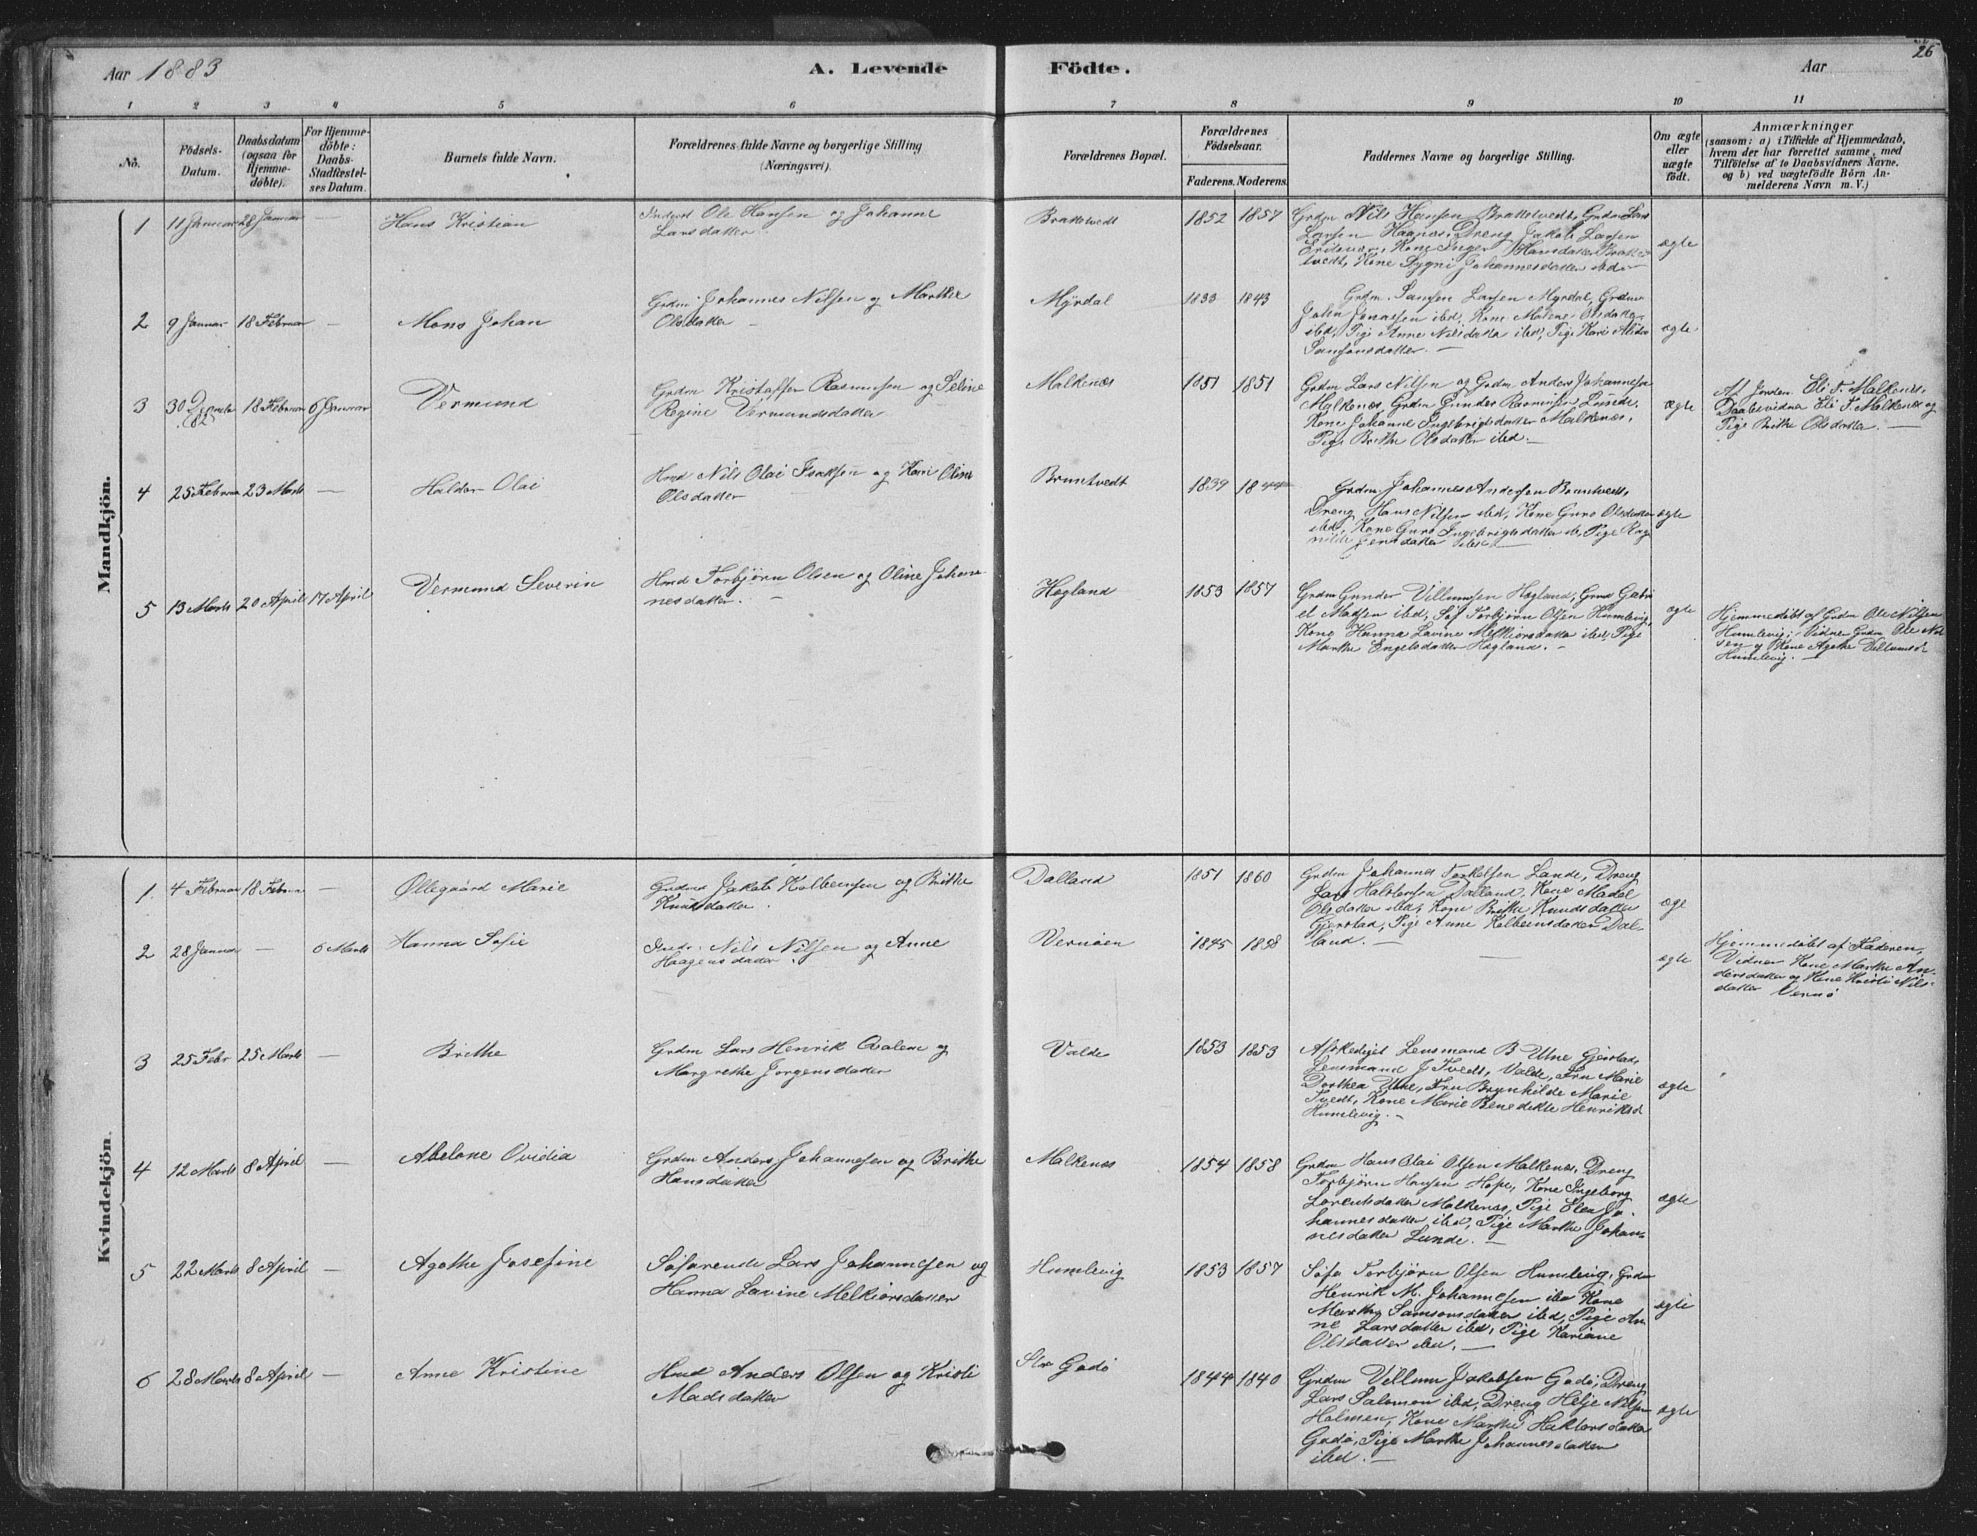 Aar 1883
A. Levende Födte.
Aar
26
1 2 3 4 5 6 7 8 9 10 11
No.
Födsels-Datum.
Daabsdatum (ogsaa for Hjemme-döbte).
For Hjemme-döbte: Daabs-Stadfæstel-ses Datum.
Barnets fulde Navn.
Forældrenes fulde Navne og borgerlige Stilling (Næringsvei).
Forældrenes Bopæl.
Forældrenes Födselsaar.
Faderens. Moderens.
Faddernes Navne og borgerlige Stilling.
Om ægte eller uægte födt.
Anmærkninger
(saasom: a) i Tilfælde af Hjemmedaab,
hvem der har forrettet samme, med
Tilföielse af to Daabsvidners Navne,
og b) ved uægtefödte Börn An-
melderens Navn m. V.)
Mandkjön.
1 11 Januar 28 Januar — Hans Kristian
Ole Hansen og Johanne
Larsdatter
Brattetvedt 1852 1857
Grdm Nils Hansen Brattetvedt, Grdm Lars
Larsen Haaness, Dreng Jakob Larsen
Kone Inger Hansdatter Bratte-
tvedt, Kone Sygni Johannesdatter ibed
ægte
2 9 Januar 18 Februar — Mons Johan
Grdm Johannes Nilsen og Marthe
Olsdatter —
Myrdal 1833 1843
Grdm. Samsen Larsen Myrdal, Grdm
John Jonassen ibed, Kone Malene Olsdatter
ibed, Pige Anne Nilsdatter ibed, Pige Kari
Samsonsdatter. —
ægte
3 30 Decmbr 82 18 Februar 6 Januar Vermund
Grdm Kristoffer Rasmussen og Seline
Regine Vermundsdatter
Malkenæs 1851 1851
Grdm Lars Nilsen og Grdm Anders Johannesen
Malkenæs, Grdm Gunder Rasmussen Lunde,
Kone Johanne Ingebrigtsdatter Malkenæs,
Pige Brithe Olsdatter ibed. —
ægte
Af Jordem. Eli T. Malkenæs,
Daabsvidner Eli T. Malkenæs og
Pige Brithe Olsdatter. —
4 25 Februar 23 Marts — Haldor Olai
Hmd Nils Olai Isaksen og Kari Oline
Olsdatter
Bruntvedt 1839 1844
Grdm Johannes Andersen Bruntvedt,
Dreng Hans Nilsen ibed, Kone Guro Olsdatter
ibed, Kone Guro Ingebrigtsdatter ib, Pige Rag-
nilde Jensdatter ibed
ægte
5 13 Marts 20 April 17 April Vermund Severin
Hmd Torbjørn Olsen og Oline Johan-
nesdatter. —
Høgland 1853 1857
Grdm Gunder Villumsen Høgland, Grmd Gabri-
el Madsen ibed, Søf Torbjørn Olsen Humlevig,
Kone Hanna Lavine Melkiorsdatter ibed, Pige
Marthe Engelsdatter Høgland. —
ægte
Hjemmedøbt af Grdm Ole Nilsen
Humlevig; Vidner Grdm Ole Nil-
sen og Kone Agathe Villumsd
Humlevig. —
Kvindekjön.
1 4 Februar 18 Febru — Øllegaard Marie
Grdmd Jakob Kolbensen og Brithe
Knudsdatter.
Dalland 1851 1860
Grdm Johannes Torkelsen Lande, Dreng
Lars Halstensen Dalland, Kone Madel
Olsdatter ibed, Kone Brithe Knudsdatter
Gjerstad, Pige Anne Kolbeinsdatter Dal-
land. —
æge
2 28 Januar — 6 Marts Hanna Sofie
Nils Nilsen og Anne
Haagensdatter.
Vernøen 1845 1858
—
ægte
Hjemmedøbt af Faderen,
Vidner Kone Marthe An-
dersdatter og Kone Kristi Nils-
datter Vernø
3 25 Febr 25 Marts — Brithe
Grdm Lars Henrik Ovalem og
Margrethe Jørgensdatter
Valde 1853 1853
Afskediget Lensmand B Utne Gjerstad,
Lensmand J Tvedt, Valde, Fru Marie
Dorthea Utne, Fru Brynhilde Marie
Tvedt, Kone Marie Benedikte Henriksd
Humlevig. —
ægte
4 12 Marts 8 April — Abelone Ovidia
Grdm Anders Johannesen og Brithe
Hansdatter
Malkenæs 1854 1858
Grdm Hans Olai Olsen Malkenæs, Dreng
Torbjørn Hansen Hope, Kone Ingeborg
Lorentsdatter Malkenæs, Pige Elen Jo-
hannesdatter ibed, Pige Marthe Johan-
nesdatter Lunde. —
ægte
5 22 Marts 8 April — Agathe Josefine
Søfarende Lars Johannesen og
Hanna Lavine Melkiorsdatter
Humlevig 1853 1857
Søfa Torbjørn Olsen Humlevig, Grdm
Henrik M. Johannesen ibed Kone
Marthe Samsonsdatter ibed, Pige An-
ne Larsdatter ibed, Pige Hariane
Olsdatter ibed. —
ægte
6 28 Marts 8 April — Anne Kristine
Hmd Anders Olsen og Kristi
Madsdatter
Str Godø 1844 1840
Grdm Villum Jakobsen Godø, Dreng
Lars Salomon ibed, Dreng Helje Nilsen
Holmen, Kone Marthe Haktorsdatter
Godø, Pige Marthe Johannesdatter
ibed. —
ægte